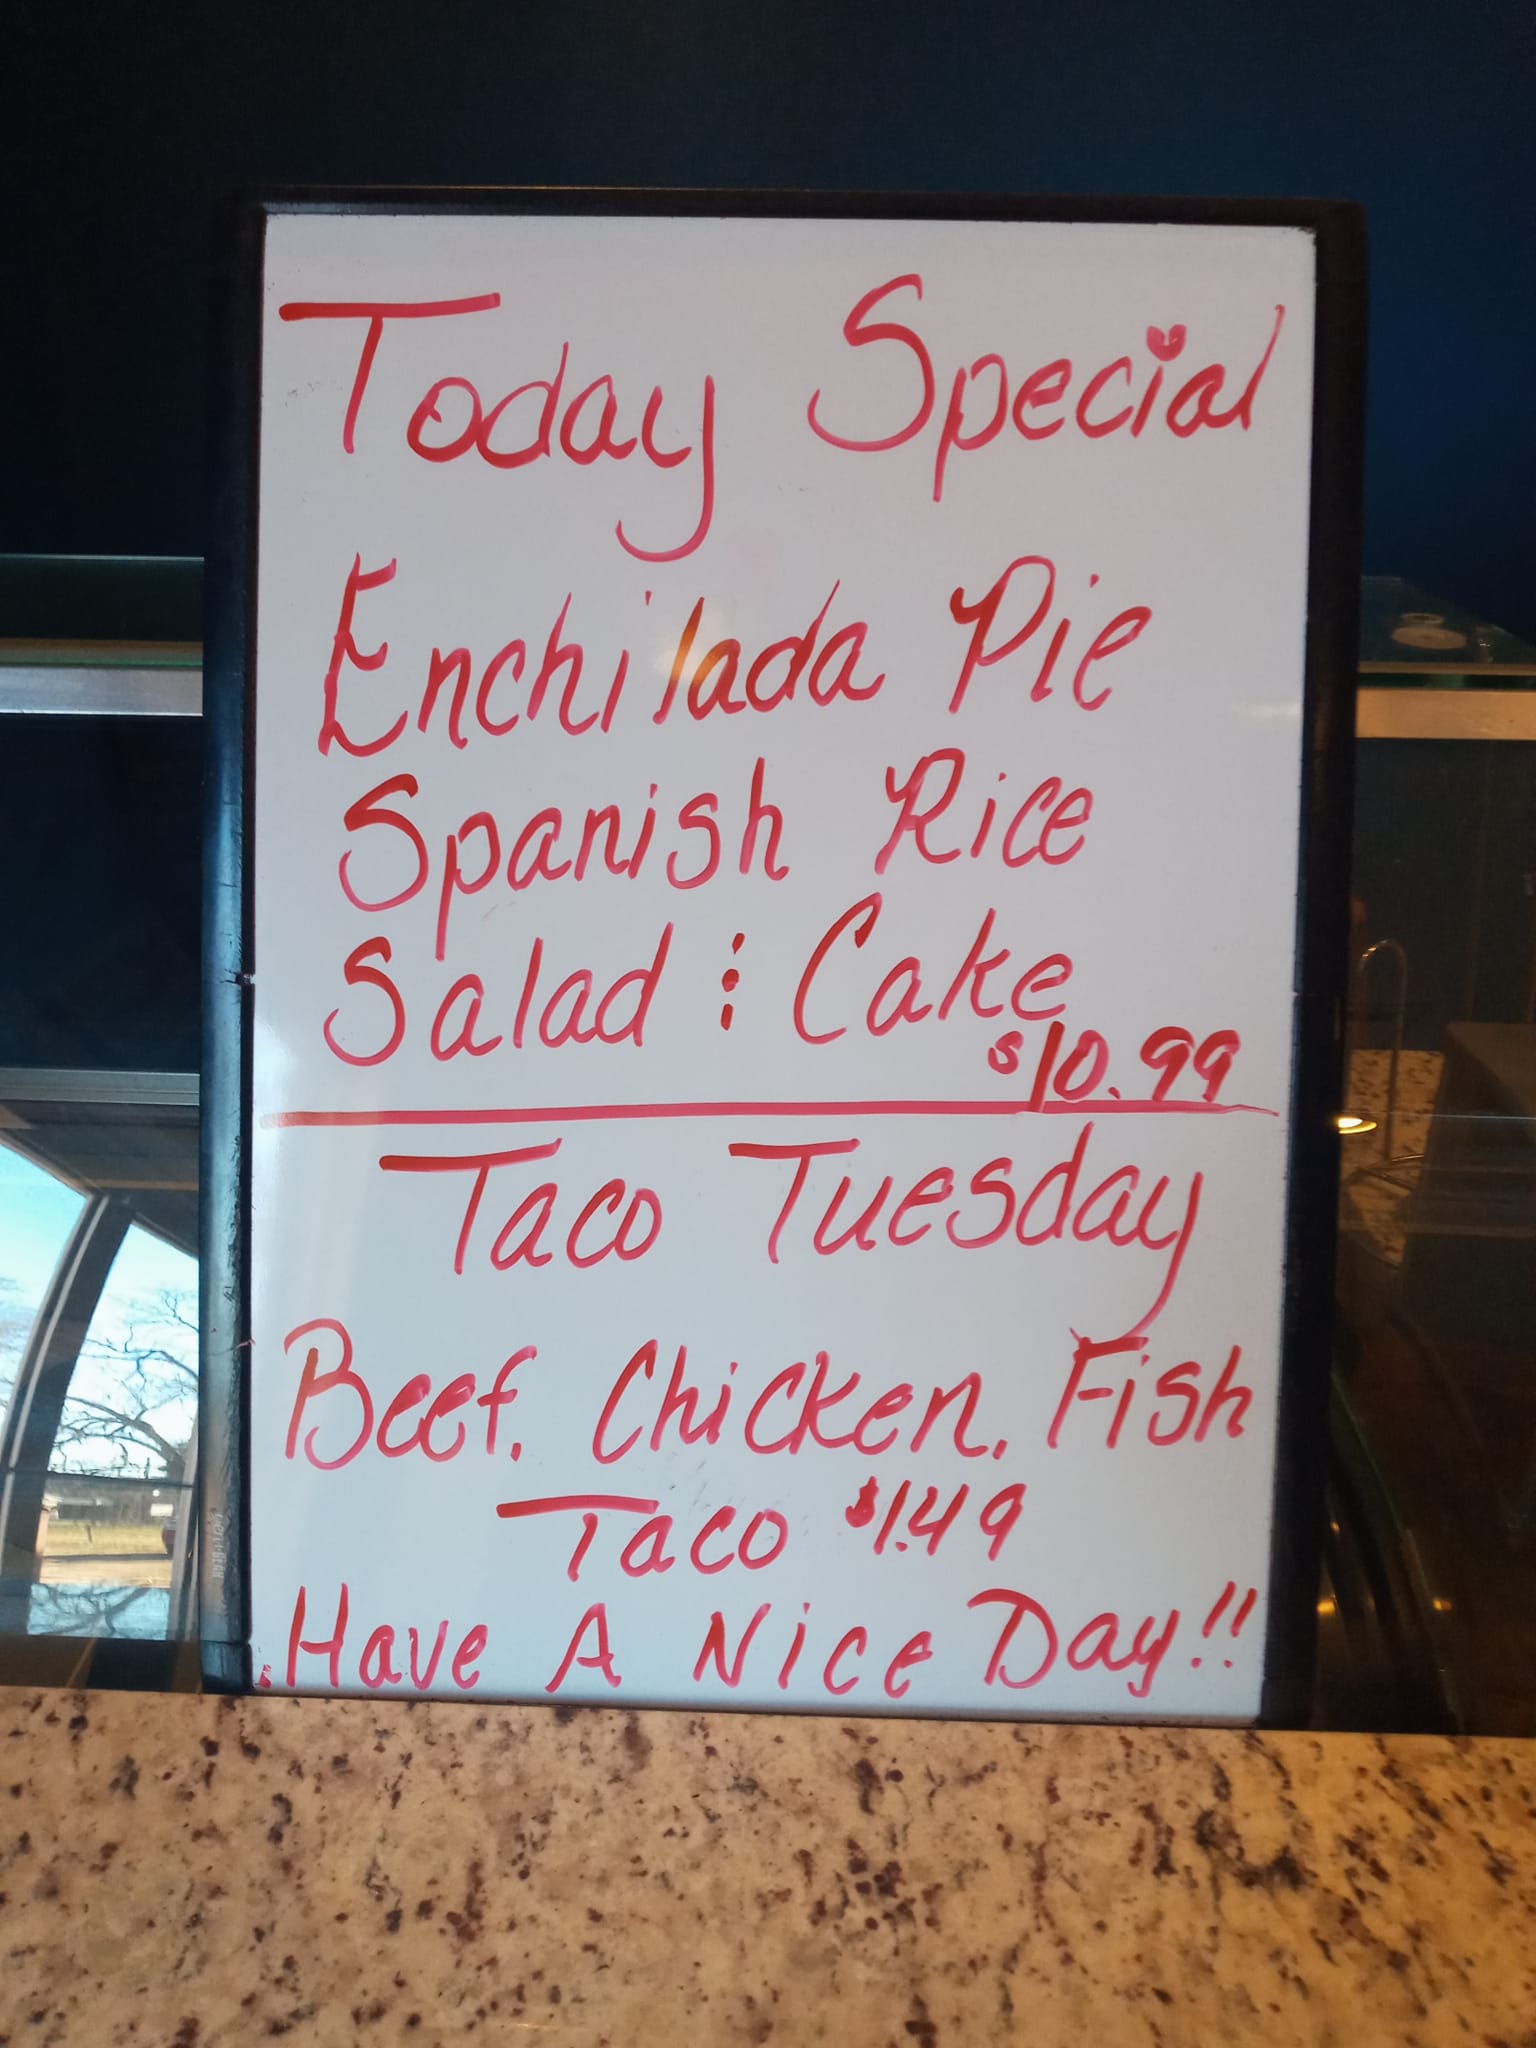 Today Special
Enchilada Pie
Spanish Rice
Salad : Cake
$10.99
Taco Tuesday
Beef, Chicken, Fish
Taco $1.49
Have A Nice Day!!